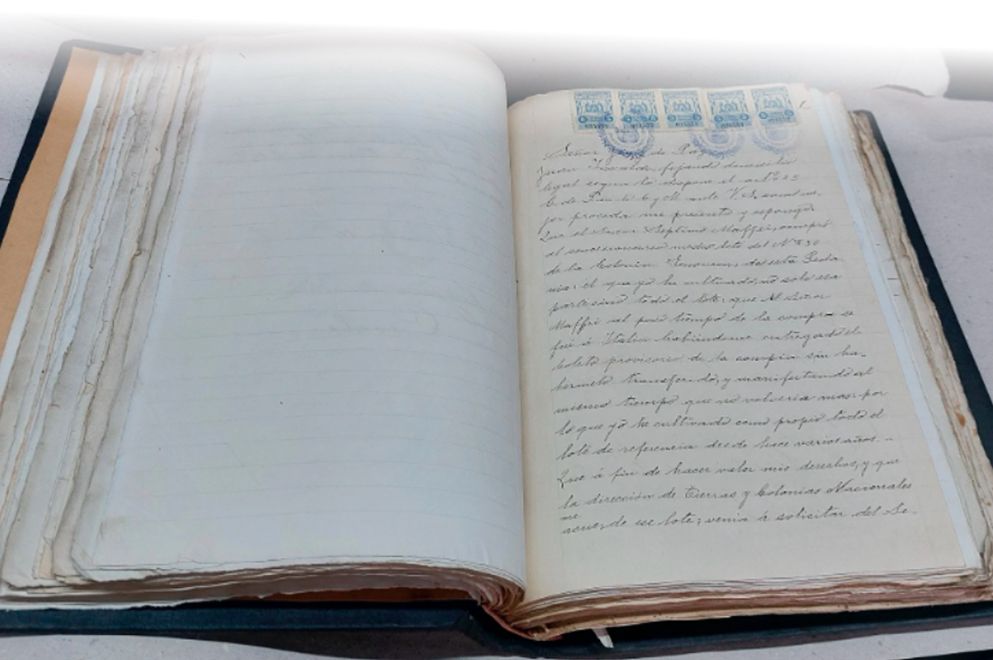 1
Señor Juez de Paz
Juan fijando domicilio
legal segun lo dispone el art.º
C. de P. en lo C. y M. ante V.S. como
por proceda me presento y espongo
Que el Señor Septimo Maffei, compró
al concesionario medio lote del Nº 30
de la Colonia de esta Peda
nia: el que yo he cultivado, no solo esa
parte sinó todo el lote; que el Señor
Maffei al poco tiempo de la compra se
fué á Italia habiendome entregado el
boleto provisorio de la compra sin ha-
bermelo transferido, y manifestando al
mismo tiempo que no volveria mas: por
lo que yo he cultivado como propio todo el
lote de referencia desde hace varios años. -
Que á fin de hacer valer mis derechos, y que
la direccion de Tierras y Colonias Nacionales
me
acuerde ese lote; venia á solicitar del Se-